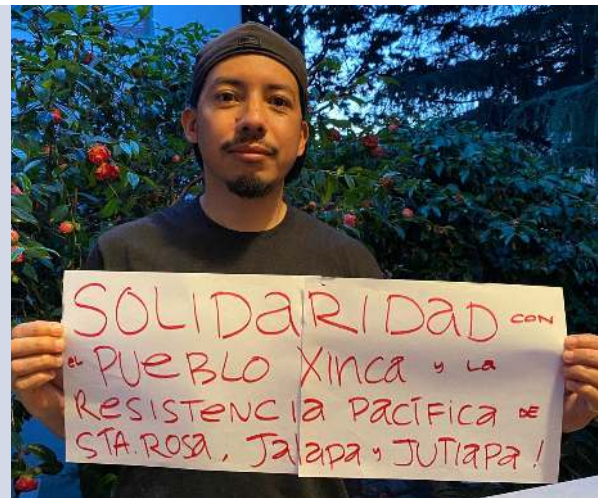 SOLIDaRIDaD CON
eL PUeBLO XINCa y La
ReSISTeNCIa PacÍFICa DE
STA. ROSa, JaLaPa y JUTIaPa!